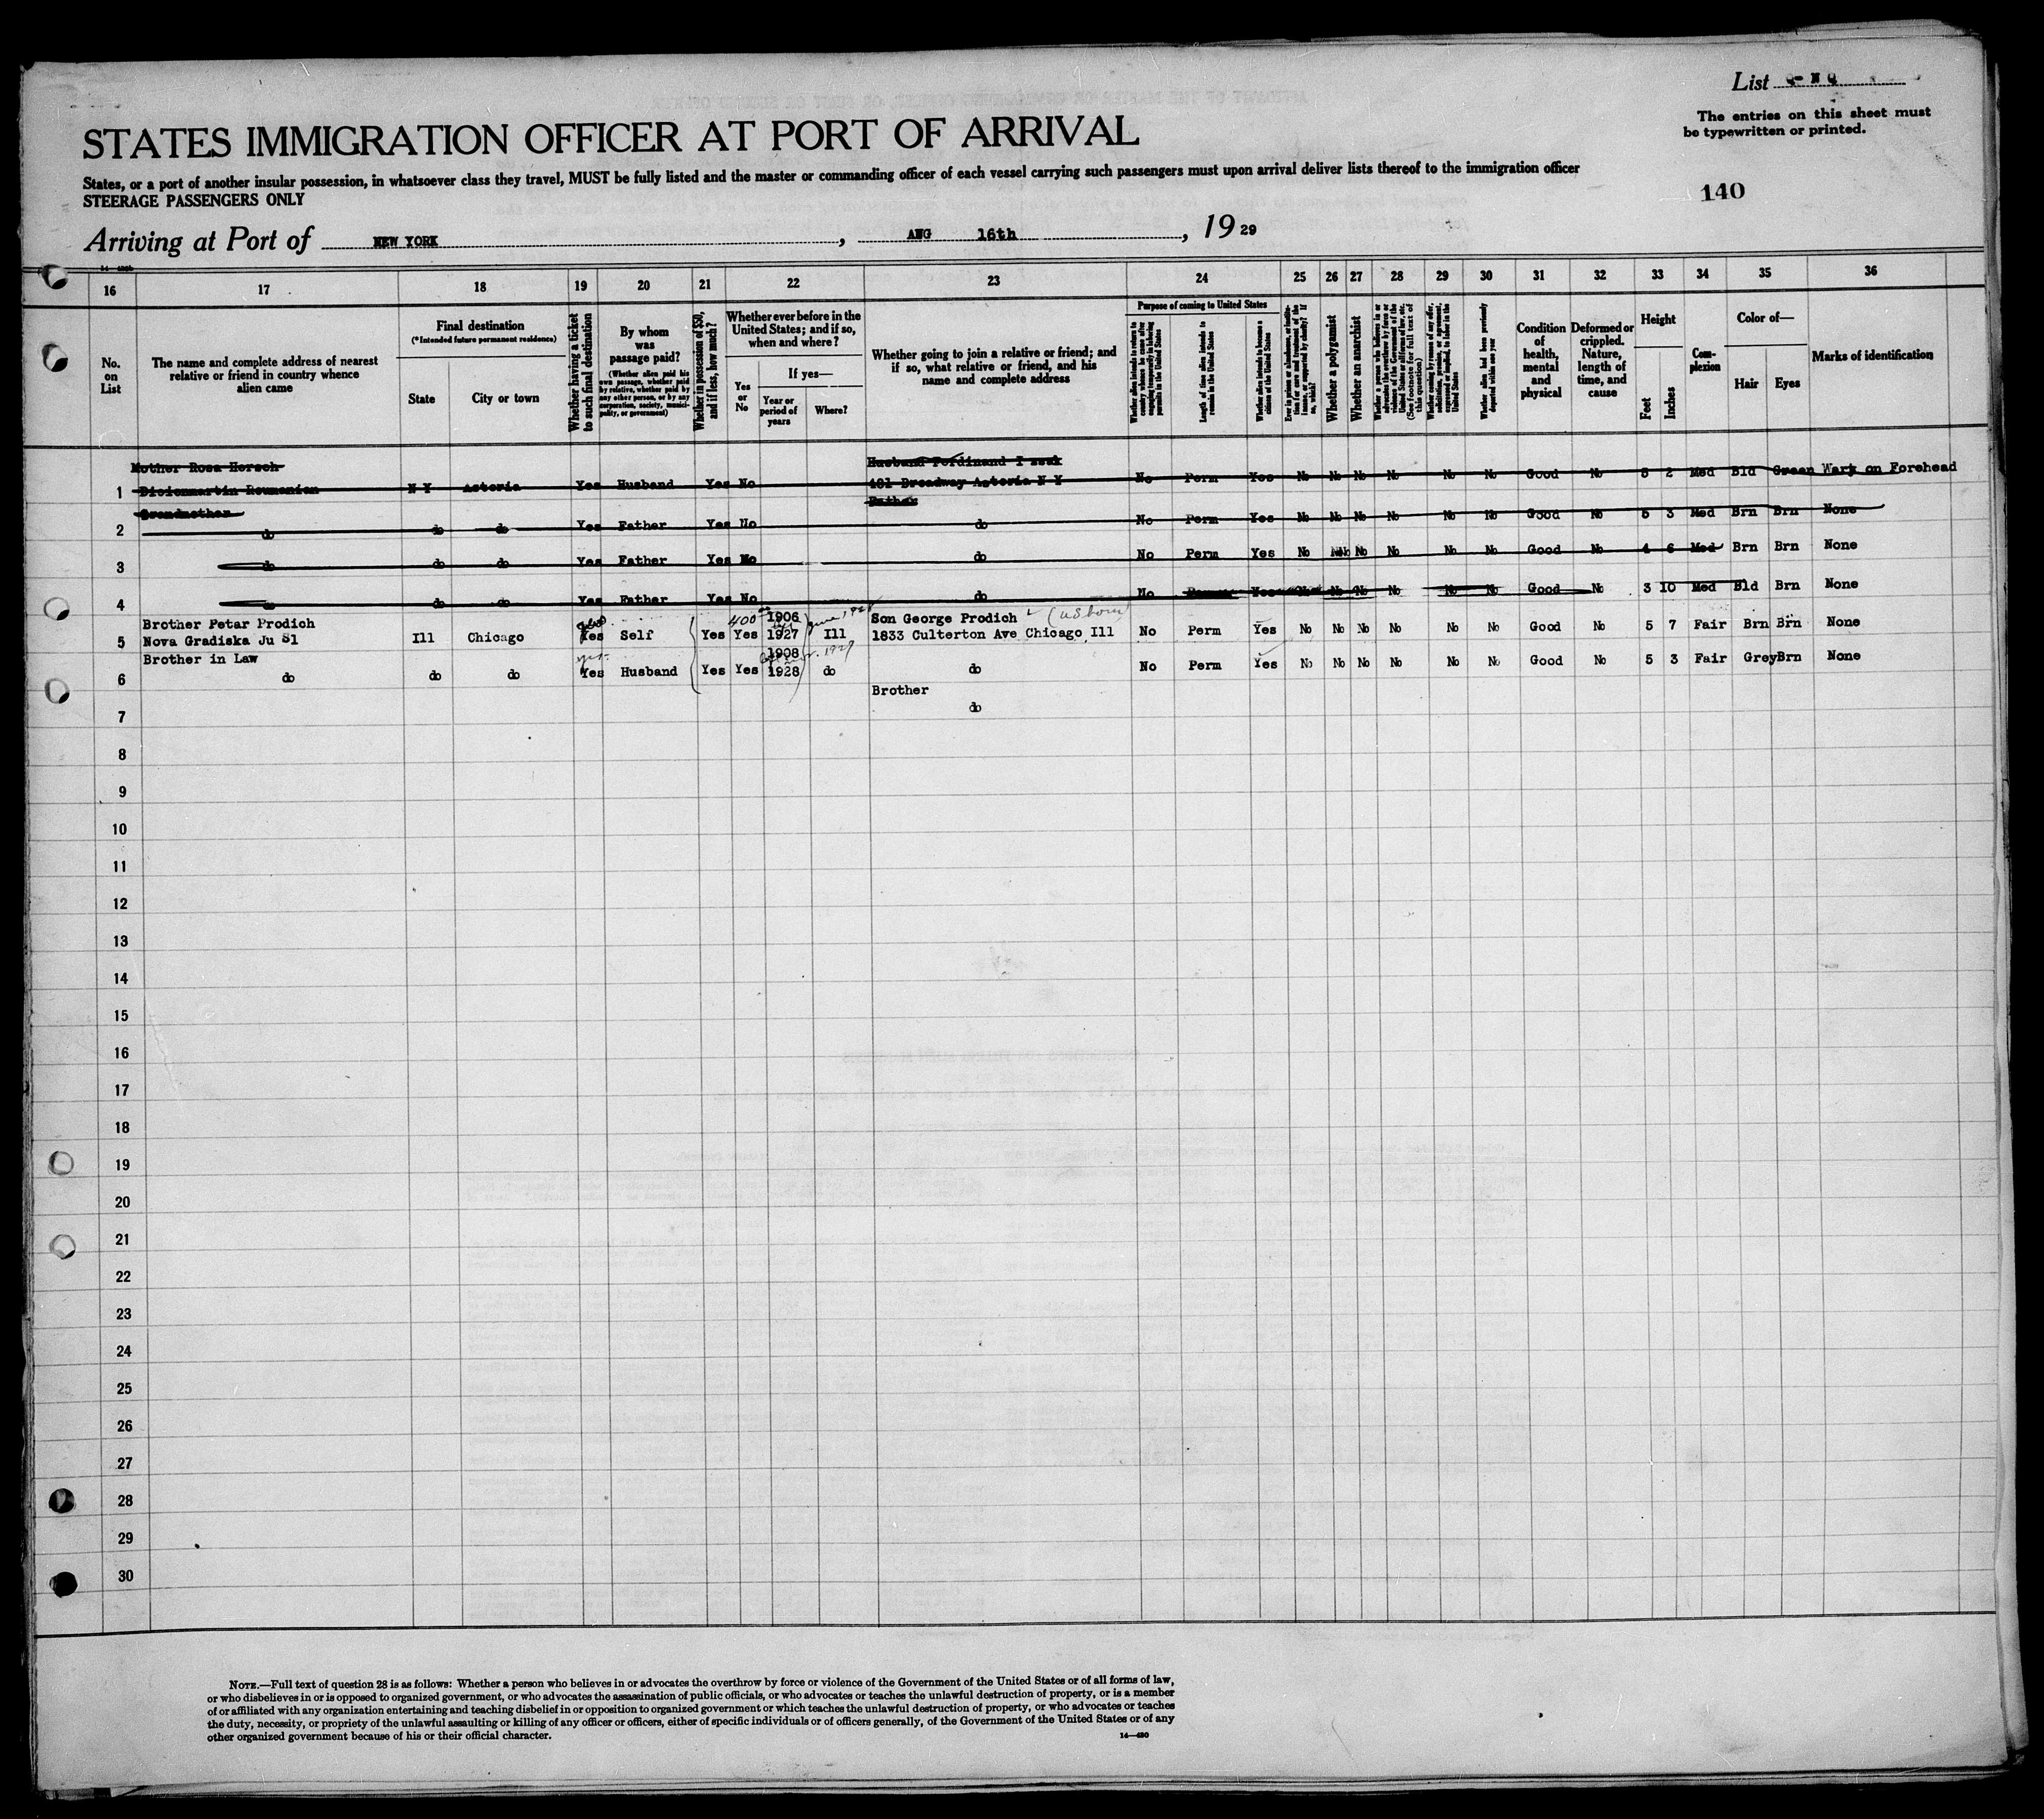 List
The entries on this sheet must
be typewritten or printed.
STATES IMMIGRATION OFFICER AT PORT OF ARRIVAL
States, or a port of another insular possession, in whatsoever class they travel, MUST be fully listed and the master or commanding officer of each vessel carrying such passengers must upon arrival deliver lists thereof to the immigration officer
STEERAGE PASSENGERS ONLY
140
Arriving at Port of NEW YORK, AUG 16th, 1929
16 17 18 19 20 21 22 23 24 25 26 27 28 29 30 31 32 33 34 35 36
No. on List
The name and complete address of nearest relative or friend in country whence alien came
Final destination
(*Intended future permanent residence)
State
City or town
Whether having a ticket to such final destination
By whom was passage paid?
(Whether alien paid his own passage, whether paid by relative, whether paid by any other person, or by any corporation, society, municipality, or government)
Whether in possession of $50, and if less, how much?
Whether ever before in the United States; and if so, when and where?
Yes or No
If yes—
Year or period of years
Where?
Whether going to join a relative or friend; and if so, what relative or friend, and his name and complete address
Purpose of coming to United States
Whether alien intends to return to country whence he came after engaging temporarily in laboring pursuits in the United States
Length of time alien intends to remain in the United States
Whether alien intends to become a citizen of the United States
Ever in prison or almshouse, or institution for care and treatment of the insane, or supported by charity? If so, which?
Whether a polygamist
Whether an anarchist
(See footnote for full text of this question)
Whether coming by reason of any offer, solicitation, promise, or agreement, expressed or implied, to labor in the United States
Whether alien had been previously deported within one year
Condition of health, mental and physical
Deformed or crippled. Nature, length of time, and cause
Height
Feet
Inches
Complexion
Color of—
Hair
Eyes
Marks of identification
Mother Rosa Hersch Husband Ferdinand
1 Dicionmartin Roumanian N Y Astoria Yes Husband Yes No 481 Broadway Astoria N Y No Perm Yes No No No No No No Good No 5 2 Med Bld Green Wark on Forehead
Grandmother Father
2 do do do Yes Father Yes No do No Perm Yes No No No No No No Good No 5 3 Med Brn Brn None
3 do do do Yes Father Yes No do No Perm Yes No No No No No No Good No 4 6 Med Brn Brn None
4 do do do Yes Father Yes No do No Yes No No No No No Good No 3 10 Med Bld Brn None
Brother Petar Prodich 400 1906 Son George Prodich (US born)
5 Nova Gradiska Ju Sl Ill Chicago Yes Self Yes Yes 1927 Ill 1833 Culterton Ave Chicago Ill No Perm Yes No No No No No No Good No 5 7 Fair Brn Brn None
Brother in Law 1908
6 do do do Yes Husband Yes Yes 1928 do do No Perm Yes No No No No No No Good No 5 3 Fair Grey Brn None
Brother
7 do
8
9
10
11
12
13
14
15
16
17
18
19
20
21
22
23
24
25
26
27
28
29
30
NOTE.—Full text of question 28 is as follows: Whether a person who believes in or advocates the overthrow by force or violence of the Government of the United States or of all forms of law,
or who disbelieves in or is opposed to organized government, or who advocates the assassination of public officials, or who advocates or teaches the unlawful destruction of property, or is a member
of or affiliated with any organization entertaining and teaching disbelief in or opposition to organized government or which teaches the unlawful destruction of property, or who advocates or teaches
the duty, necessity, or propriety of the unlawful assaulting or killing of any officer or officers, either of specific individuals or of officers generally, of the Government of the United States or of any
other organized government because of his or their official character.
14—430